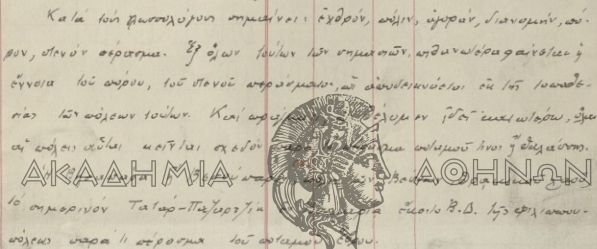 Κατά τούς γλωσσολόγους σημαίνει: ἐχθρόν, πόλιν, ἀγοράν, διανομήν, πό-
ρον, στενόν πέρασμα. Ἐξ ὅλων τούτων τῶν σημασιῶν, πιθανωτέρα φαίνεται ἡ
ἔννοια τοῦ πόρου, τοῦ στενοῦ περάσματος, ὡς ἀποδεικνύεται ἐκ τῆς τοποθε-
σίας τῶν πόλεων τούτων. Καί πραγματικῶς θέλομεν ἰδεῖ κατωτέρω, ὅλαι
αἱ πόλεις αὗται κεῖνται σχεδόν παρά πέρασμα ποταμοῦ τινος ἤ θαλάσσης.
ΑΚΑΔΗΜΙΑ ΑΘΗΝΩΝ
τό σημερινόν Τατάρ-Παζαρτζίκ ἔκειτο Β.Δ. τῆς Φιλιππου-
πόλεως παρά τι πέρασμα τοῦ ποταμοῦ Ἕβρου.